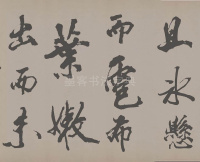 且氷懸
而雹布
葉嫩
出而未